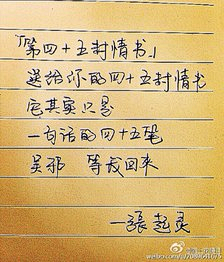 「第四十五封情书」
送给你的四十五封情书
它其实只是
一句话的四十五笔
吴邪 等我回来
一張起灵